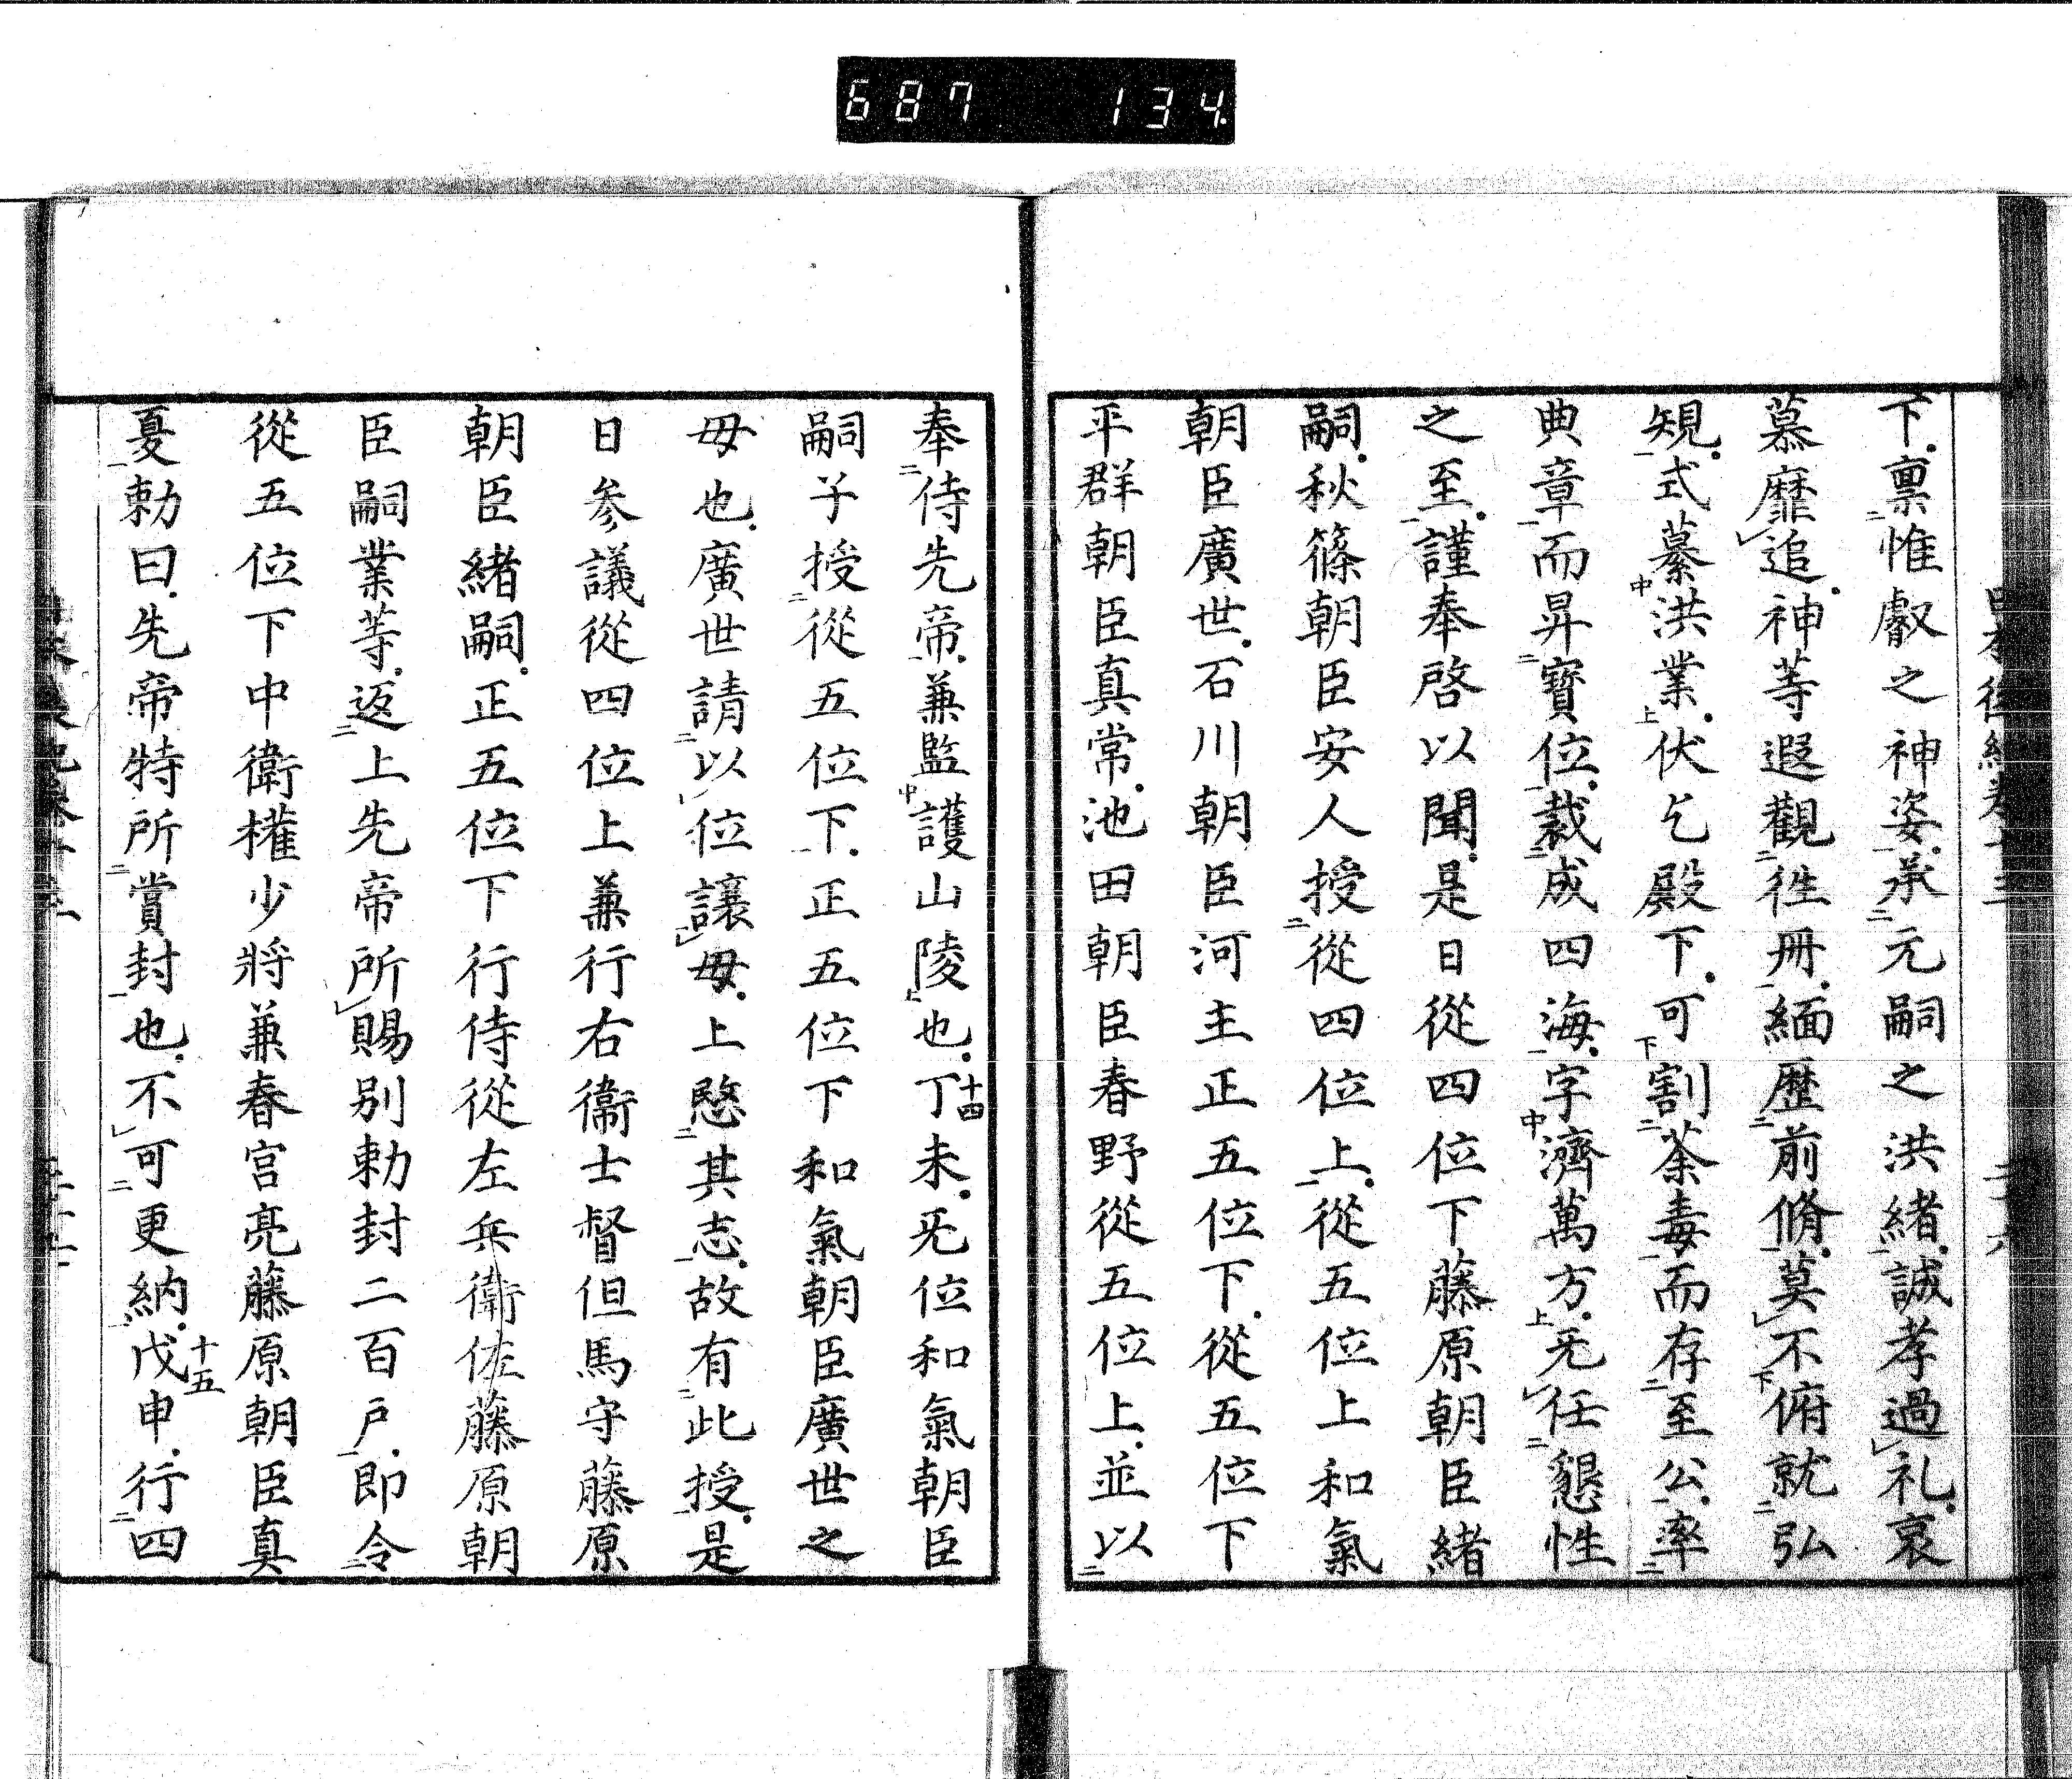 687 134
下禀惟叡之神姿承元嗣之洪緒誠孝過礼哀
慕靡追神等遐觀徃冊緬歴前脩莫不俯就弘
規式纂洪業伏乞殿下可割荼毒而存至公率
典章而昇寳位裁成四海字濟萬方旡任懇性
之至謹奉啓以聞是日從四位下藤原朝臣緒
嗣秋篠朝臣安人授從四位上從五位上和氣
朝臣廣世石川朝臣河主正五位下從五位下
平群朝臣真常池田朝臣春野從五位上並以
奉侍先帝兼監護山陵也丁未旡位和氣朝臣
十四
嗣子授從五位下正五位下和氣朝臣廣世之
毋也廣世請以位讓毋上愍其志故有此授是
日参議從四位上兼行右衞士督但馬守藤原
朝臣緒嗣正五位下行侍從左兵衛佐藤原朝
臣嗣業等返上先帝所賜別勅封二百戸即令
從五位下中衛權少將兼春宮亮藤原朝臣真
夏勅曰先帝特所賞封也不可更納戊申行四
十五